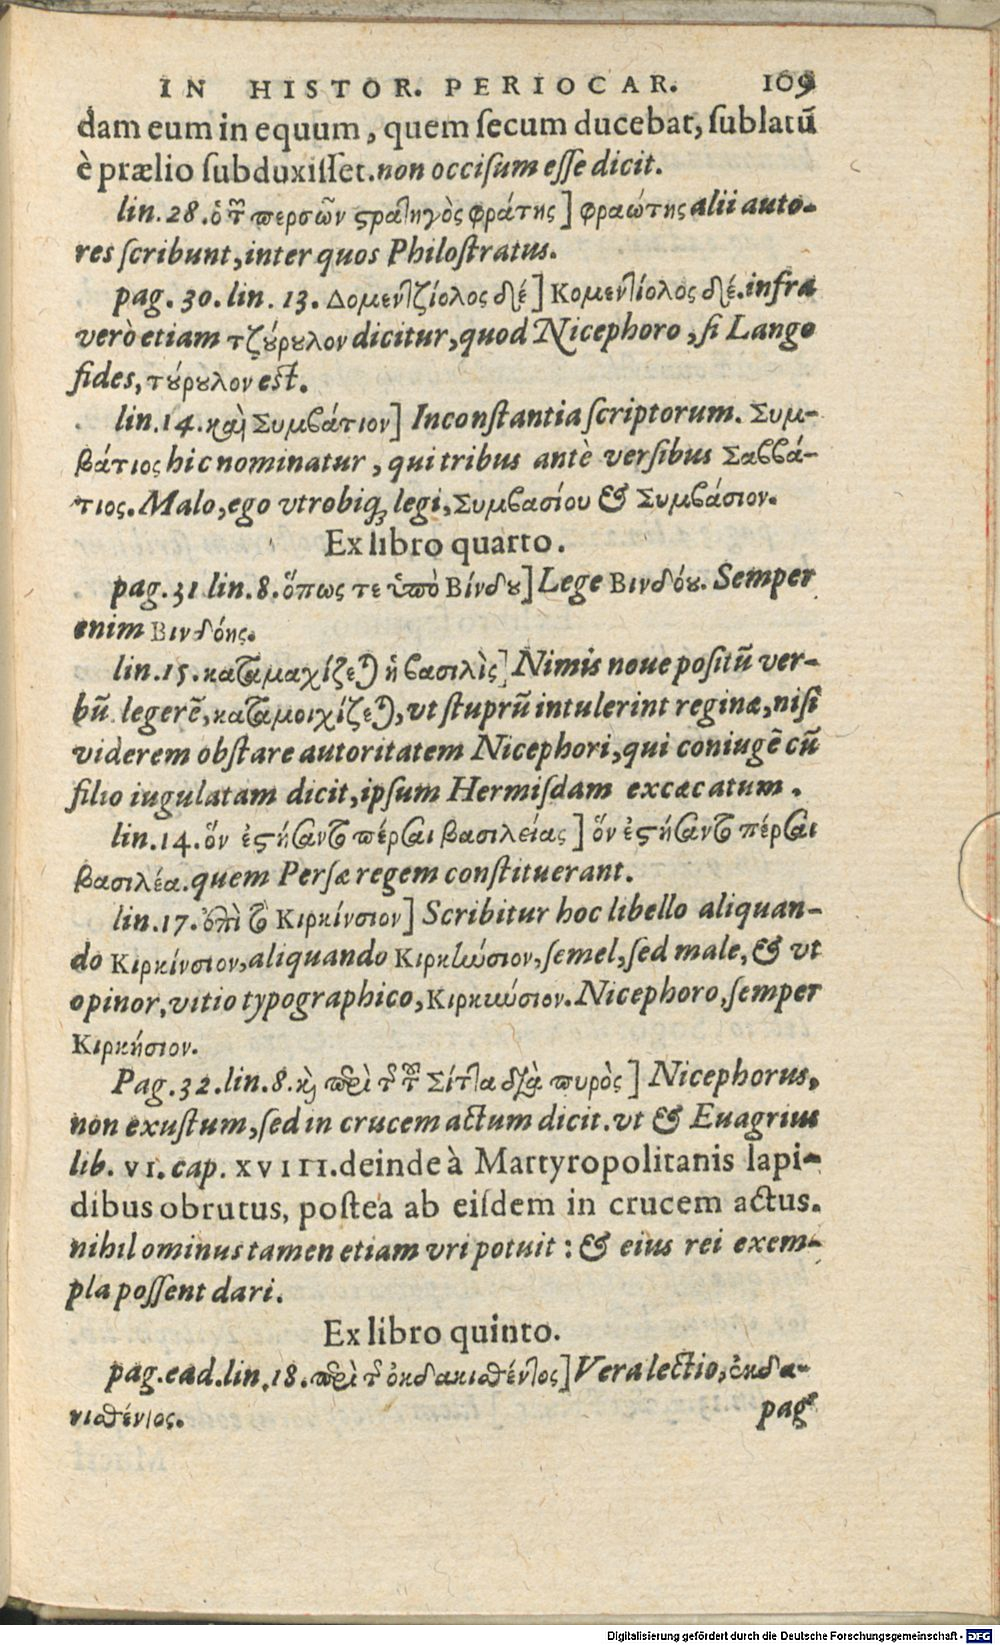 IN HISTOR. PERIOCAR. 109
dam eum in equum, quem secum ducebat, sublatū
è prælio subduxisset. non occisum esse dicit.
lin. 28. ὁ τῶν περσῶν στρατηγὸς φράτης] φραώτης alii auto-
res scribunt, inter quos Philostratus.
pag. 30. lin. 13. Δομεντζίολος δὲ] Κομεντίολος δέ. infra
verò etiam τζούρουλον dicitur, quod Nicephoro, si Lango
fides, τούρουλον est.
lin. 14. καὶ Συμβάτιον] Inconstantia scriptorum. Συμ-
βάτιος hic nominatur, qui tribus antè versibus Σαββά-
τιος. Malo, ego vtrobiq; legi, Συμβασίου & Συμβάσιον.
Ex libro quarto.
pag. 31 lin. 8. ὅπως τε ὑπὸ Βίνδου] Lege Βινδόου. Semper
enim Βινδόης.
lin. 15. καταμαχίζεται ἡ βασιλὶς] Nimis noue positū ver-
bū legerē, καταμοιχίζεται, vt stuprū intulerint reginæ, nisi
viderem obstare autoritatem Nicephori, qui coniugē cū
filio iugulatam dicit, ipsum Hermisdam excæcatum.
lin. 14. ὅν ἐστήσαντο πέρσαι βασιλείας] ὅν ἐστήσαντο πέρσαι
βασιλέα. quem Persæ regem constituerant.
lin. 17. ἐπὶ τὸ Κιρκίνσιον] Scribitur hoc libello aliquan-
do Κιρκίνσιον, aliquando Κιρκηνύσιον, semel, sed male, & vt
opinor, vitio typographico, Κιρκικύσιον. Nicephoro, semper
Κιρκήσιον.
Pag. 32. lin. 8. καὶ περὶ τοῦ τῶν Σίττα διὰ πυρὸς] Nicephorus,
non exustum, sed in crucem actum dicit. vt & Euagrius
lib. VI. cap. XVIII. deinde à Martyropolitanis lapi-
dibus obrutus, postea ab eisdem in crucem actus.
nihilominus tamen etiam vri potuit: & eius rei exem-
pla possent dari.
Ex libro quinto.
pag. ead. lin. 18. περὶ τοῦ ἐκδακιαθέντος] Vera lectio, ἐκδα-
νιαθέντος. pag.
Digitalisierung gefördert durch die Deutsche Forschungsgemeinschaft - DFG